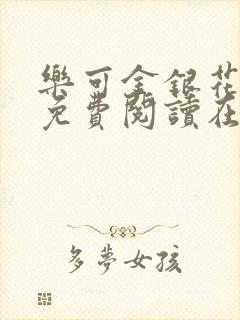 樂可金銀花
免費閱讀在
多夢女孩